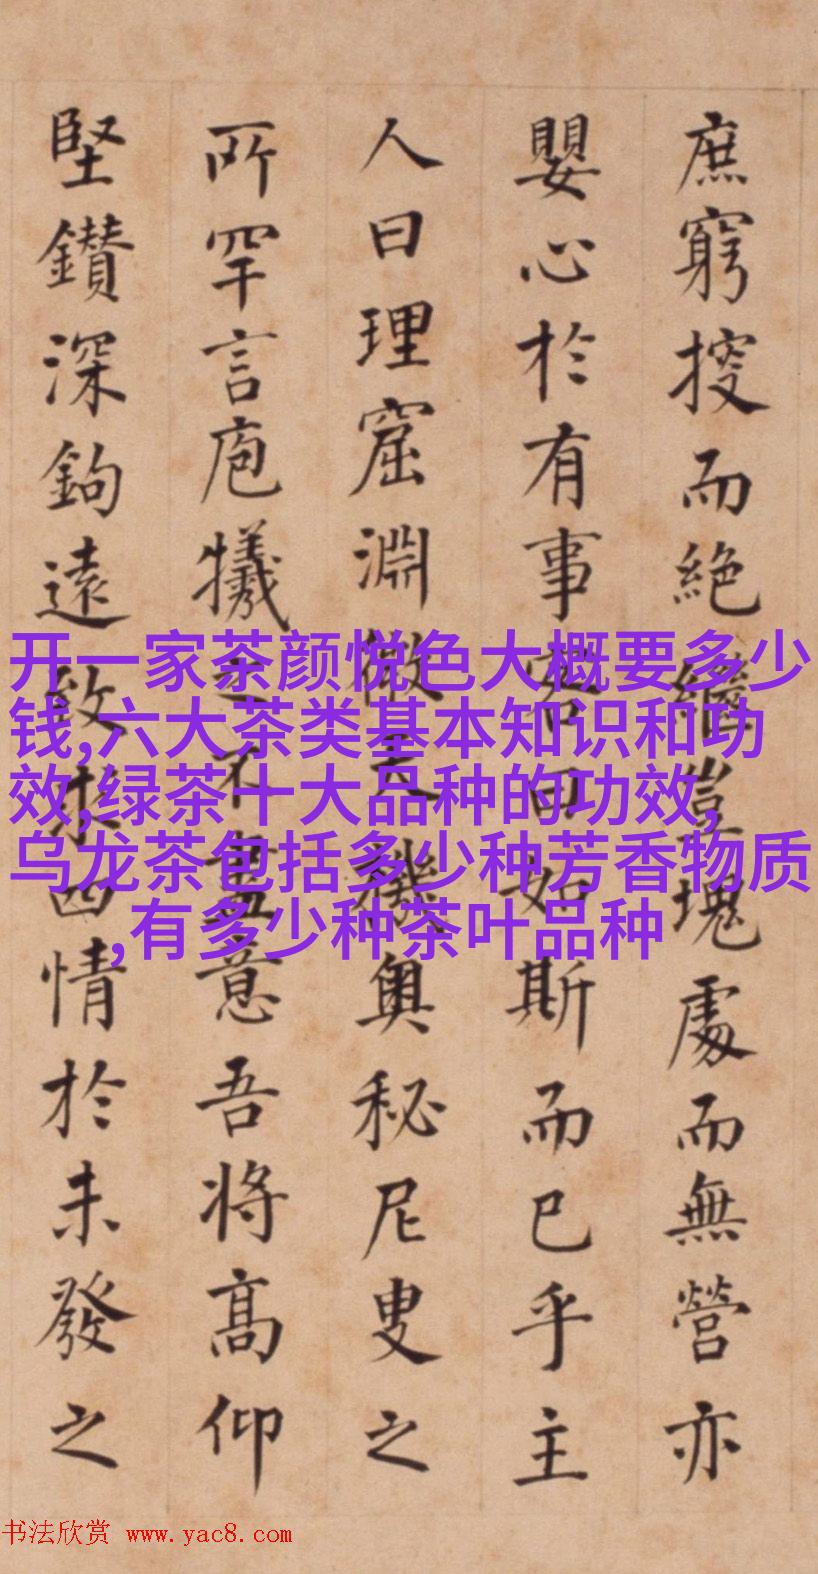 庶窮搜而絶繼豈塊處而無營亦
嬰心於有事客曰如斯而已乎主
人曰理窟淵微天機奧秘尼叟之
所罕言庖犧之不畫意吾将高仰
堅鑽深鉤遠致求四情於未發之
开一家茶颜悦色大概要多少
钱,六大茶类基本知识和功
效,绿茶十大品种的功效,
乌龙茶包括多少种芳香物质
,有多少种茶叶品种
书法欣赏 www.yac8.com